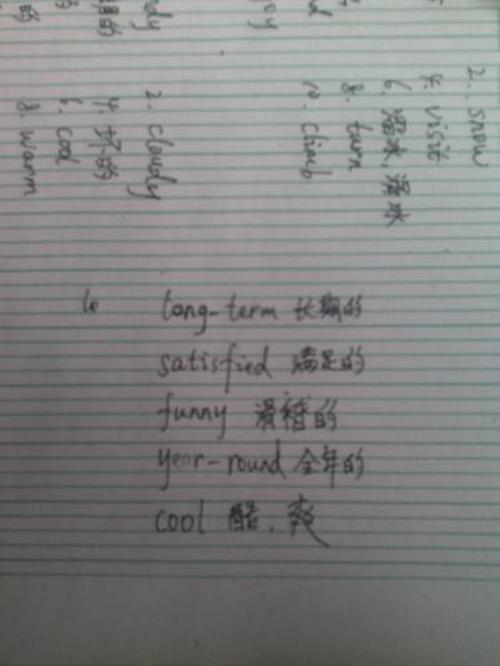 2. snow
4. visit
6. 溜冰 滑冰
8. turn
10. climb
2. cloudy
4.
6. cool
8. warm
10
long-term 长期的
satisfied 满足的
funny 滑稽的
year-round 全年的
cool 酷、爽